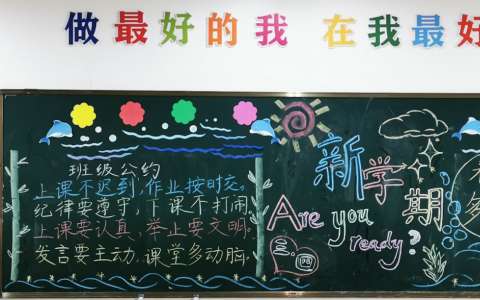 做最好的我 在我最好
班级公约
上课不迟到,作业按时交。
纪律要遵守,下课不打闹。
上课要认真,举止要文明。
发言要主动,课堂多动脑。
新学期
Are you
ready?